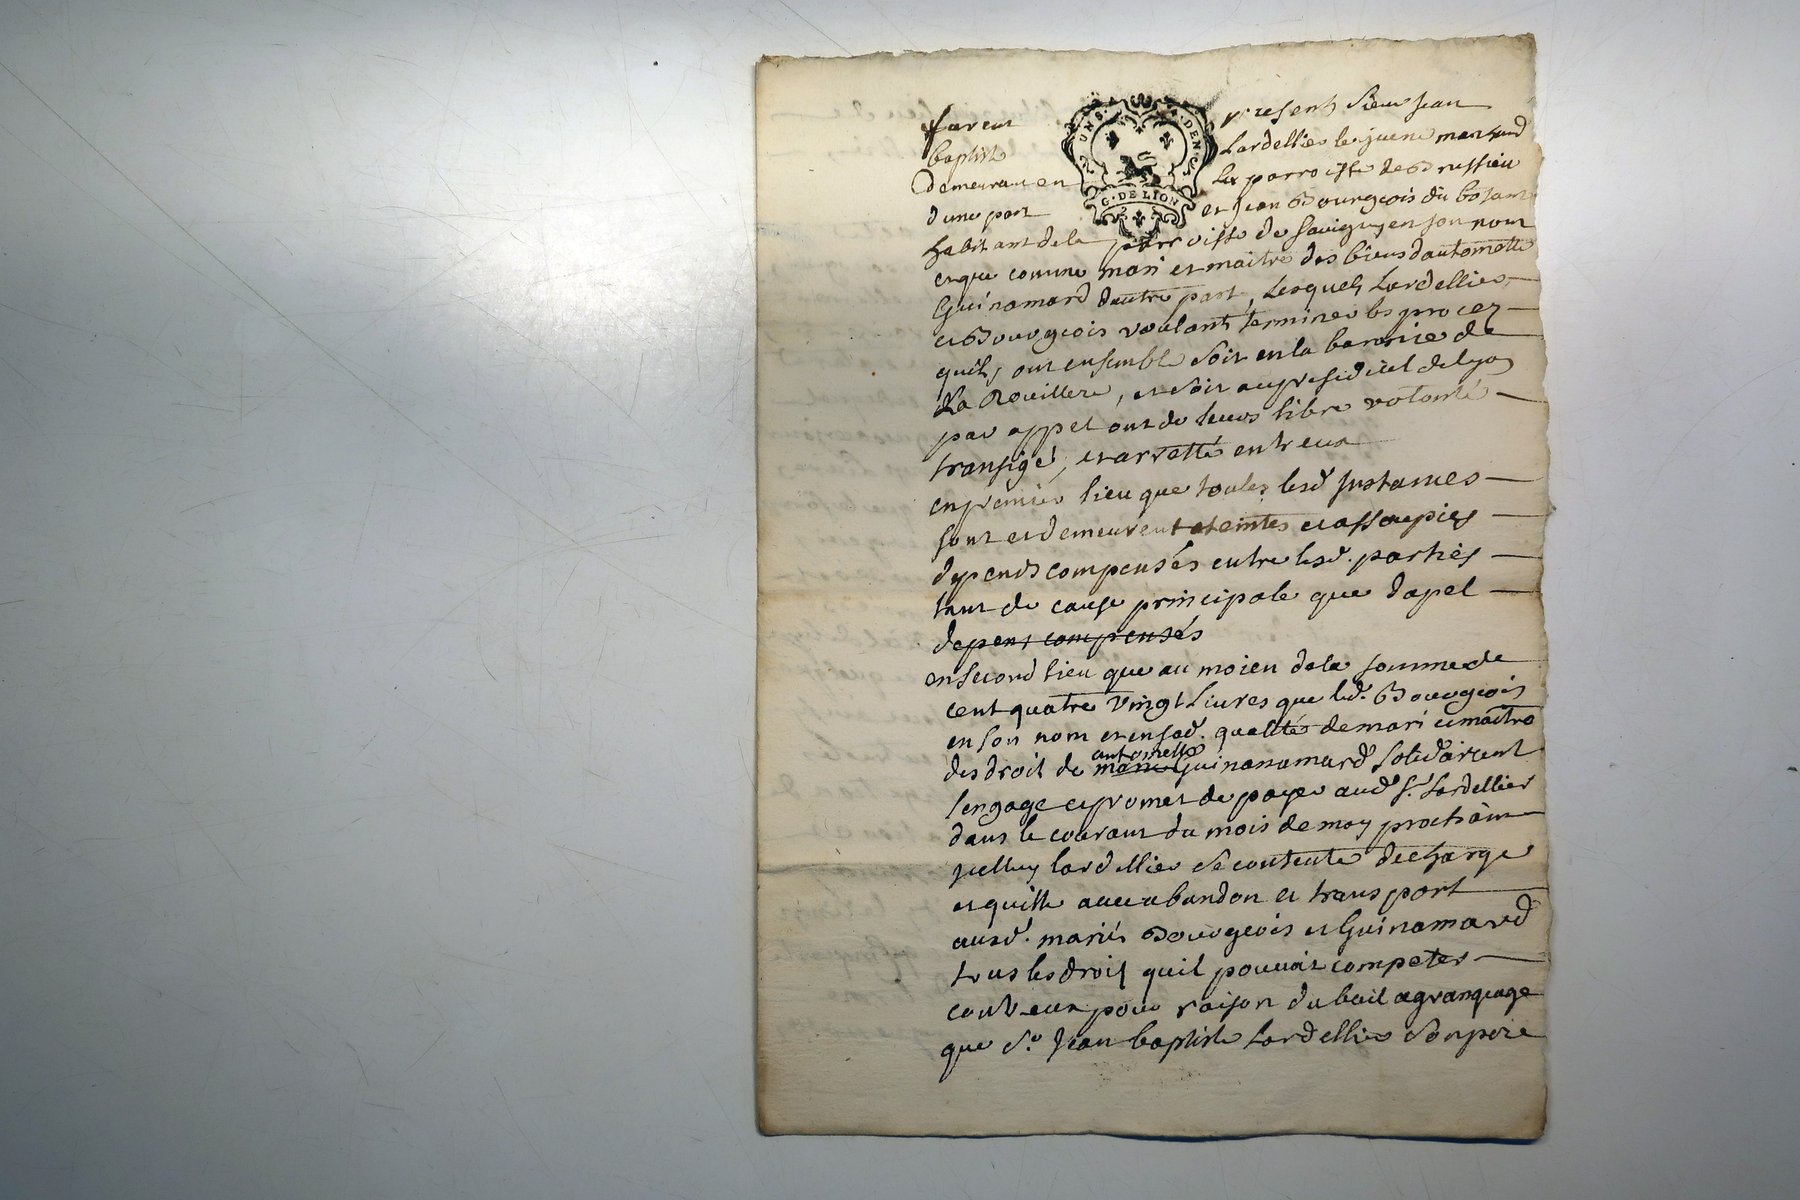 furent present sieur Jean
UN S. 4. DEN.
baptiste Lardellier le jeune marchand
demeurant en la parroisse de Brussieu
G. DE LION
dune part et Jean Bourgeois du
habitant de la parroisse de Savigny en son nom
et que comme mari et maitre des biens dantomette
Guinamard dautre part, Lesquels Lardellier
et Bourgeois voulants terminer les procez
quils ont ensemble soit en la baronie de
La Roüillere, et soit au presidial de lyon
par appel ont de leurs libre volonté
transigé, et arretté entreux
en premier lieu que toutes lesd. Instances
sont et demeurent eteintes et assoupies
depends compensés entre lesd. parties
tant de cause principale que dapel
depens compensés
en second lieu que au moien de la somme de
cent quatre vingt Livres que led. Bourgeois
en son nom et en sad. qualité de mari et maitre
antomette
des droit de marie Guinanamard solidairemt
sengage et promet de payer aud. Sr. Lardellier
dans le courant du mois de may prochain
Jcelluy lardellier se contente decharge
et quitte avec abandon et transport
ausd. mariés Bourgeois et Guinamard
tous les droit quil pouvoit competer
contr eux pour raison du bail a grangeage
que Sr. Jean baptiste Lardellier son pere